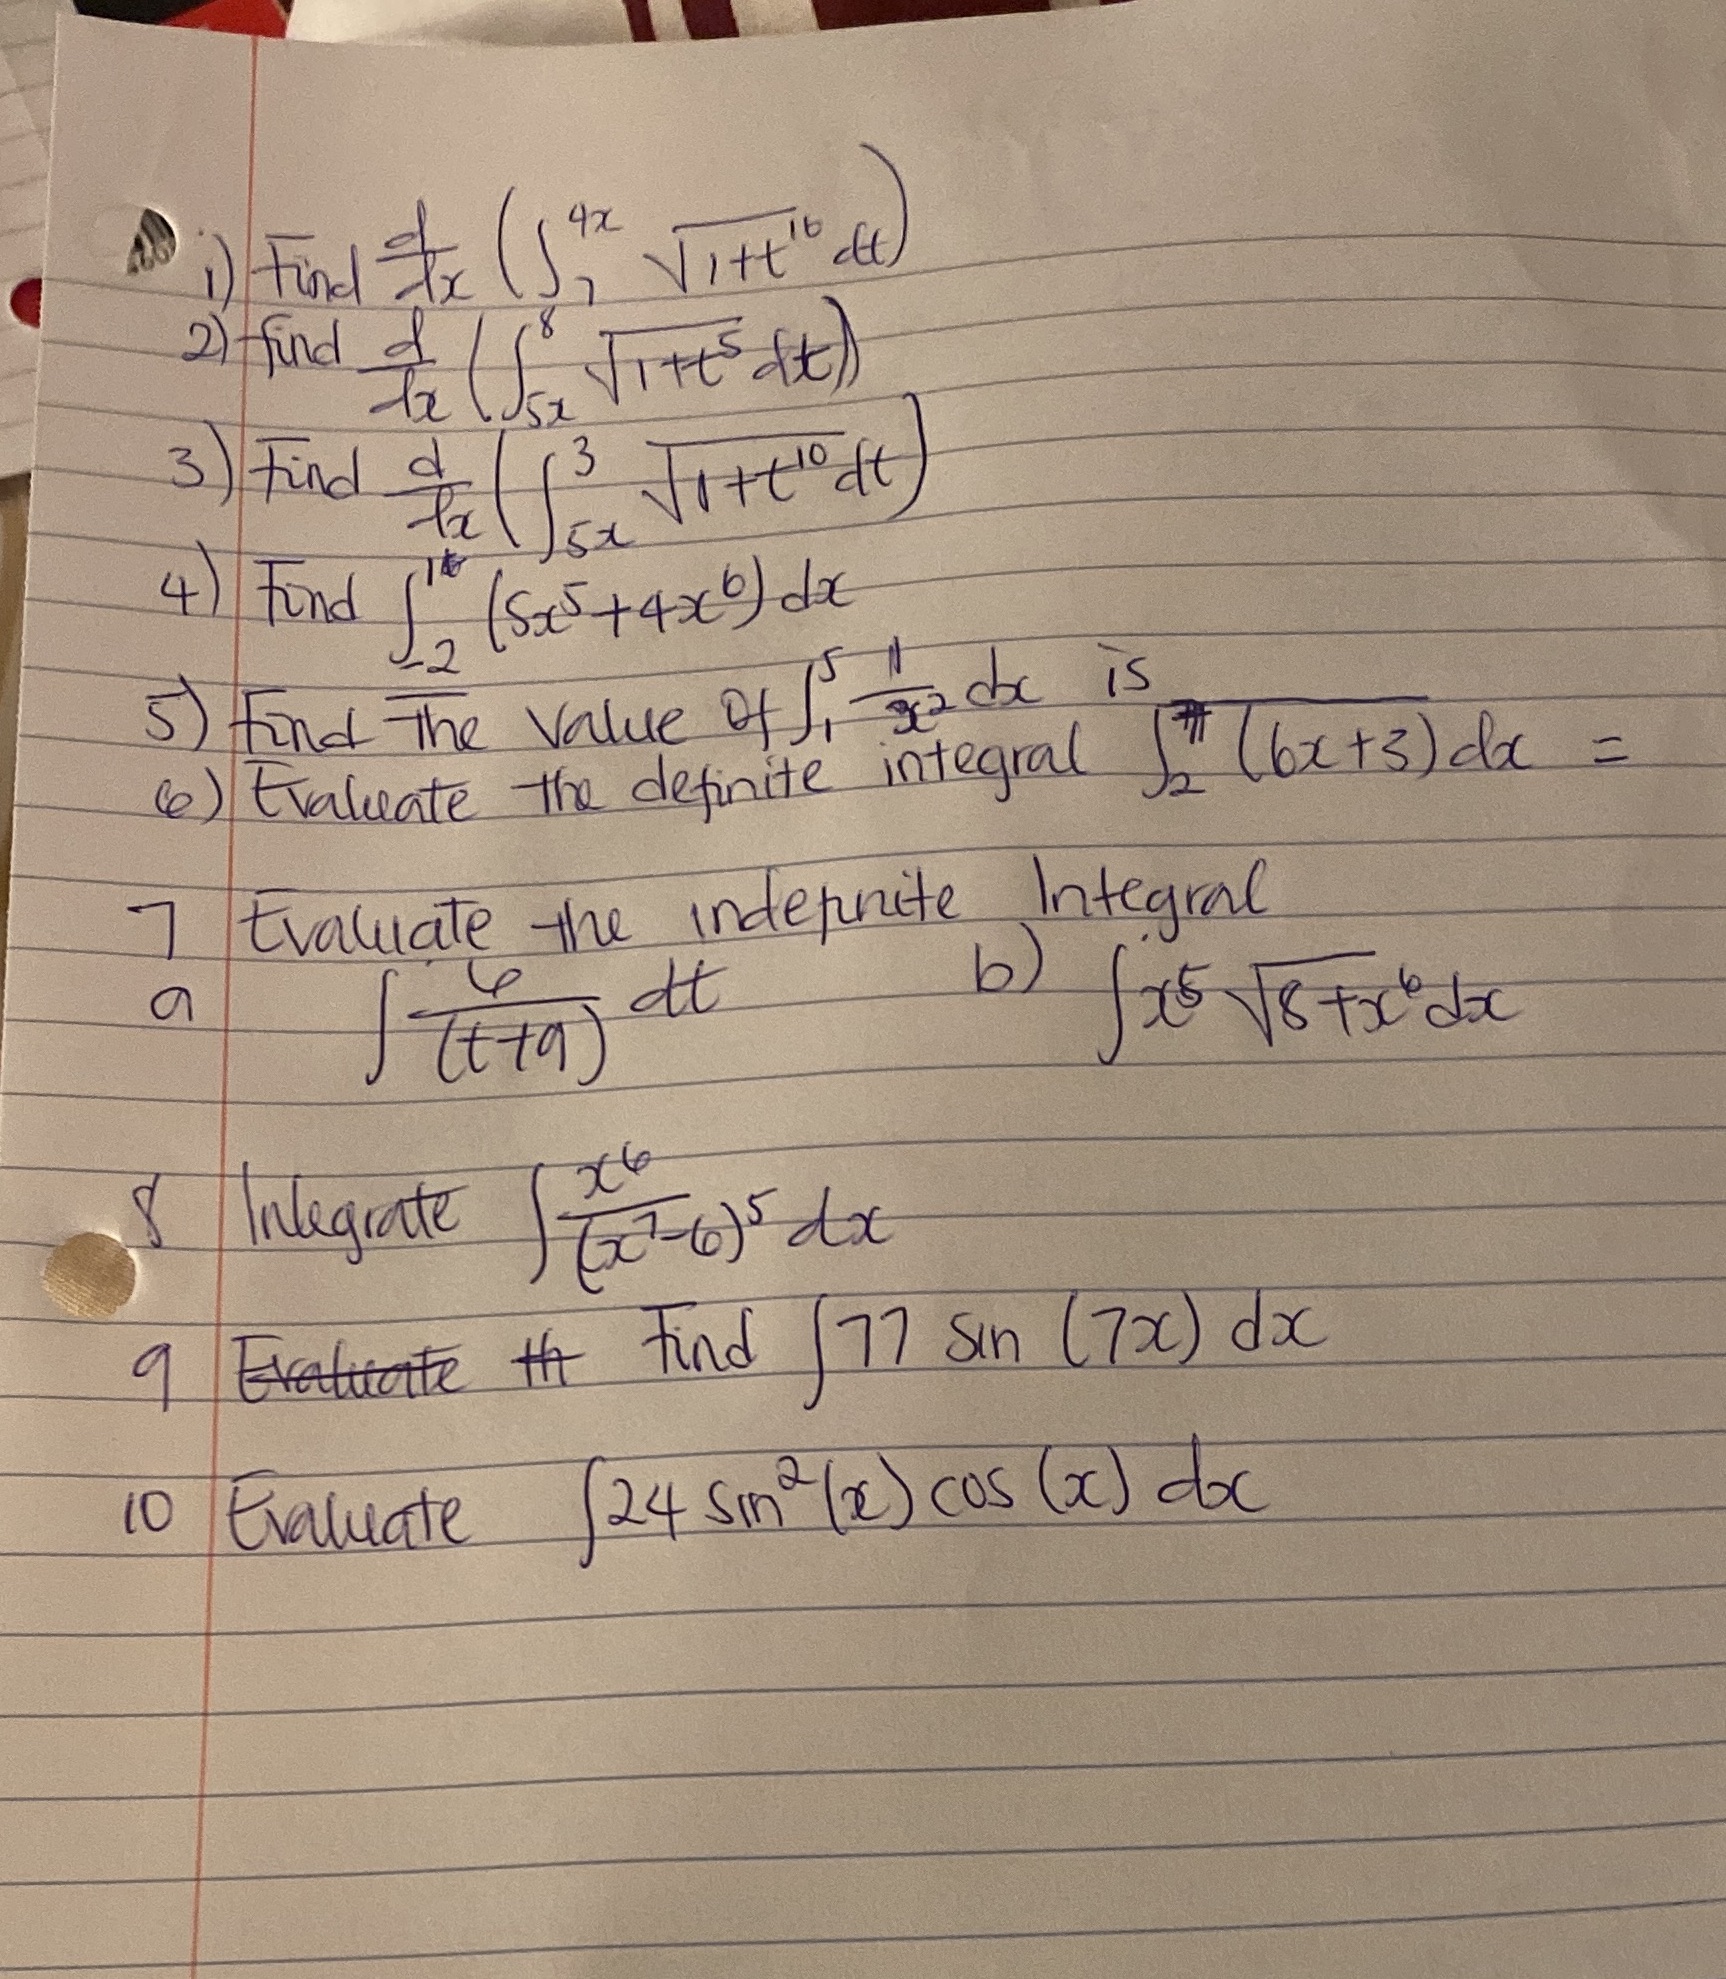 1) Find d/dx (∫₇^4x √1+t^16 dt)
2) find d/dx (∫_5x^8 √1+t^5 dt)
3) Find d/dx (∫_5x^3 √1+t^10 dt)
4) Find ∫_-2 (5x^5+4x^6) dx
5) Find The value of ∫₁^5 1/x^2 dx is
6) Evaluate the definite integral ∫₂ (6x+3) dx =
7 Evaluate the indefinite Integral
a ∫ 6/(t+9) dt b) ∫x^5 √8+x^6 dx
8 Integrate ∫ x^6/(x^7-6)^5 dx
9 Evaluate th Find ∫77 sin (7x) dx
10 Evaluate ∫24 sin^2(x) cos(x) dx